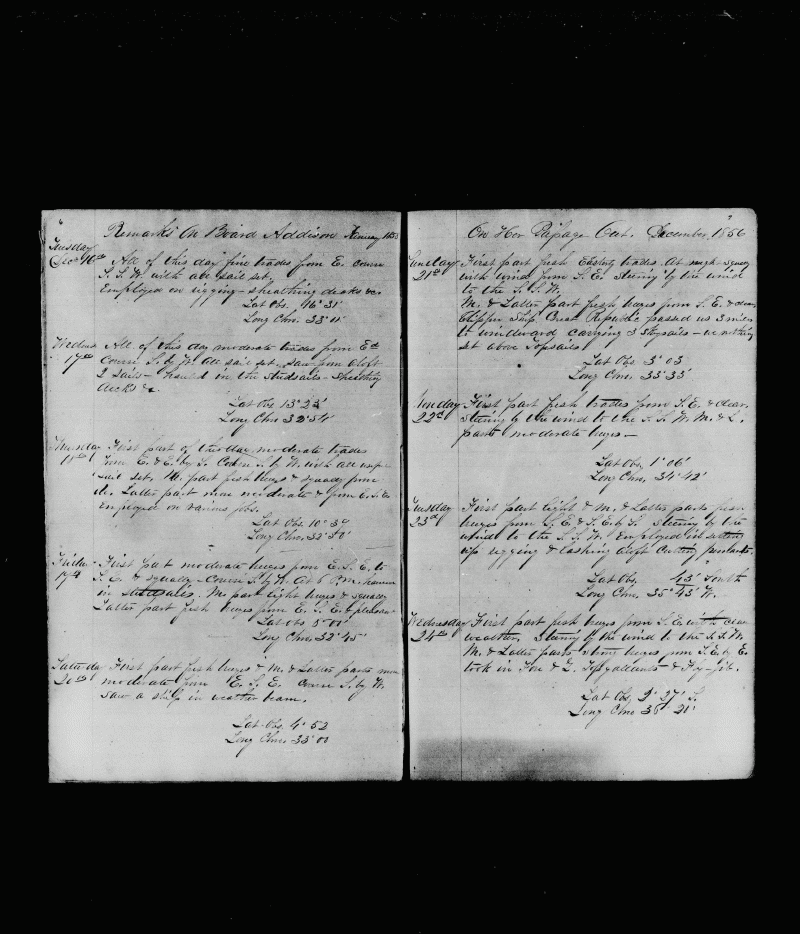 6
Remarks On Board Addison
Tuesday
Dec 16th All of this day fine trades from E. course
S.S.W. with all sail set.
Employed on rigging - sheathing decks &c
Lat Obs. 16° 31'
Long Chro. 33° 11'
Wednes
17th All of this day moderate trades from Ed
Course S. by W. All sail set. Saw from aloft
2 sails - hauled in the studsails - sheathing
decks &c.
Lat Obs 13° 23'
Long Chro 32° 54'
Thursday
18th First part of this day moderate trades
from E. & E. by S. Course S. by W. with all
sail set. M. part fresh breezes & squally from
do. Latter part more moderate & from E.S.E.
Employed on various jobs.
Lat Obs 10° 30
Long Chro. 32° 50'
Friday
19th First part moderate breezes from E.S.E. to
S.E. & squally - Course S. by W. At 6 P.M. hauled
in studsails. M. part light breezes & squally
Latter part fresh breezes from E.S.E. & pleasan
Lat Obs
Long Chro. 32° 45'
Saturday First part fresh breezes & M. & Latter parts more
20th moderate from E.S.E. Course S. by W.
Saw a ship in weather beam.
Lat Obs. 4° 52
Long Chro. 33° 00
7
On Her Passage Out. December 1856
Sunday First part fresh Easterly trades. At night squally
21st with wind from S.E. steering by the wind
to the S.S.W.
M. & Latter part fresh breezes from S.E. & clear
Clipper Ship Great Republic passed us 3 miles
to windward carrying 3 Skysails - we nothing
set above Topsails
Lat Obs 3° 03
Long Chro. 33° 33'
Monday First part fresh trades from S.E. & clear.
22d Steering by the wind to the S.S.W. M. & L.
parts moderate breezes -
Lat Obs. 1° 06'
Long Chro. 34° 42'
Tuesday First part light & M. & Latter parts fresh
23d breezes from S.E. & S.E. by S. Steering by the
wind to the S.S.W. Employed in setting
up rigging & lashing cutting pendants.
Lat Obs. 43' South
Long Chro. 35° 43' W.
Wednesday First part fresh breezes from S.E. with clear
24th weather. Steering by the wind to the S.S.W.
M. & Latter parts strong breezes from S.E. by E.
took in Fore & Topgallants & Fly-jib.
Lat Obs 2° 27' S.
Long Chro 36° 21'